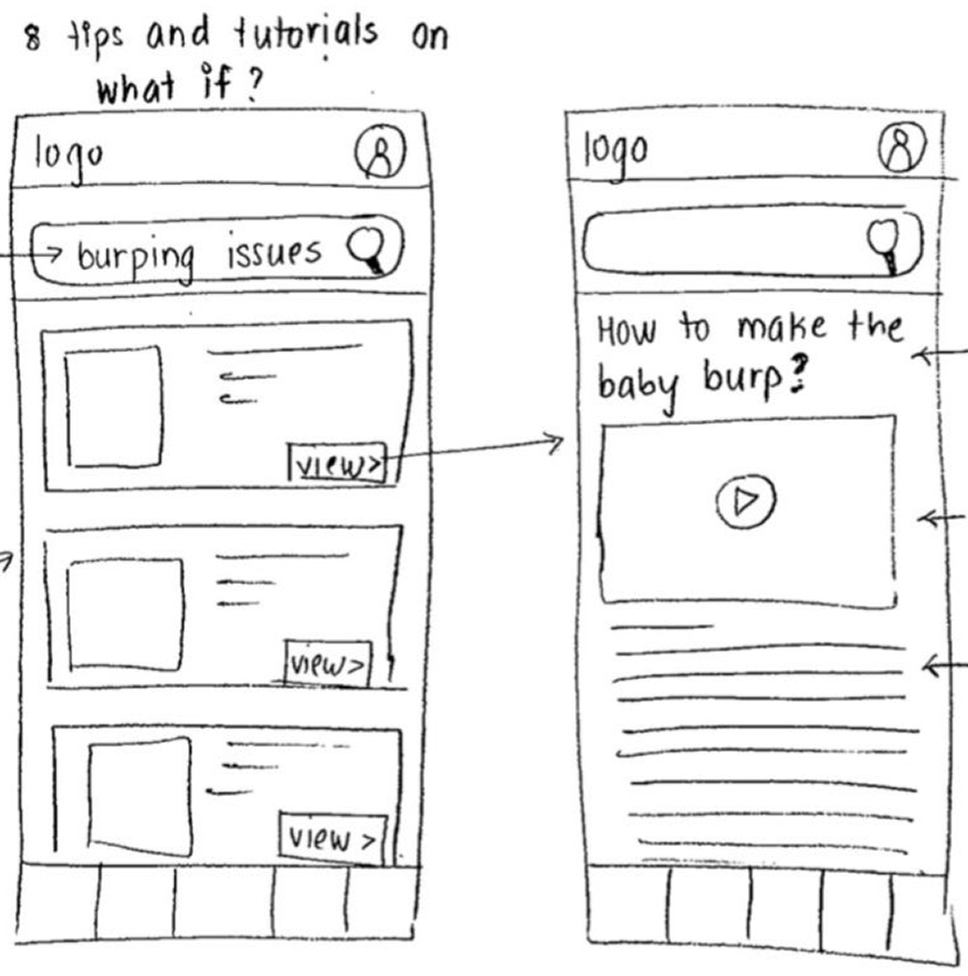 8 tips and tutorials on
what if?
logo
burping issues
view>
view>
view >
logo
How to make the
baby burp?